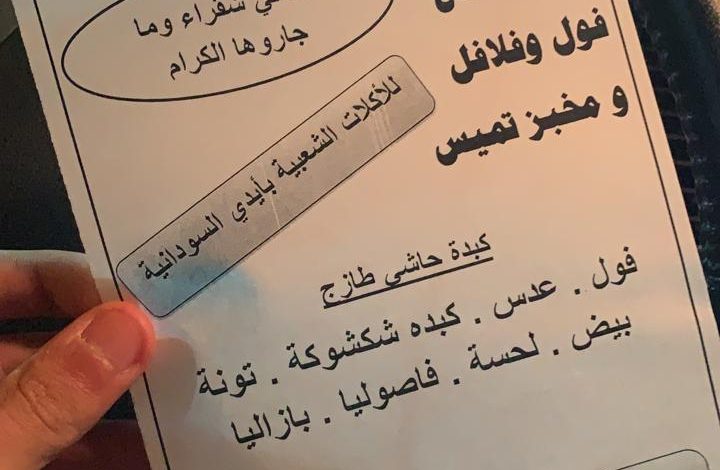 شقراء وما
جاروها الكرام
فول وفلافل
و مخبز تميس
للأكلات الشعبية بأيدي السودانية
كبدة حاشي طازج
فول . عدس . كبده شكشوكة . تونة
بيض . لحسة . فاصوليا . بازاليا